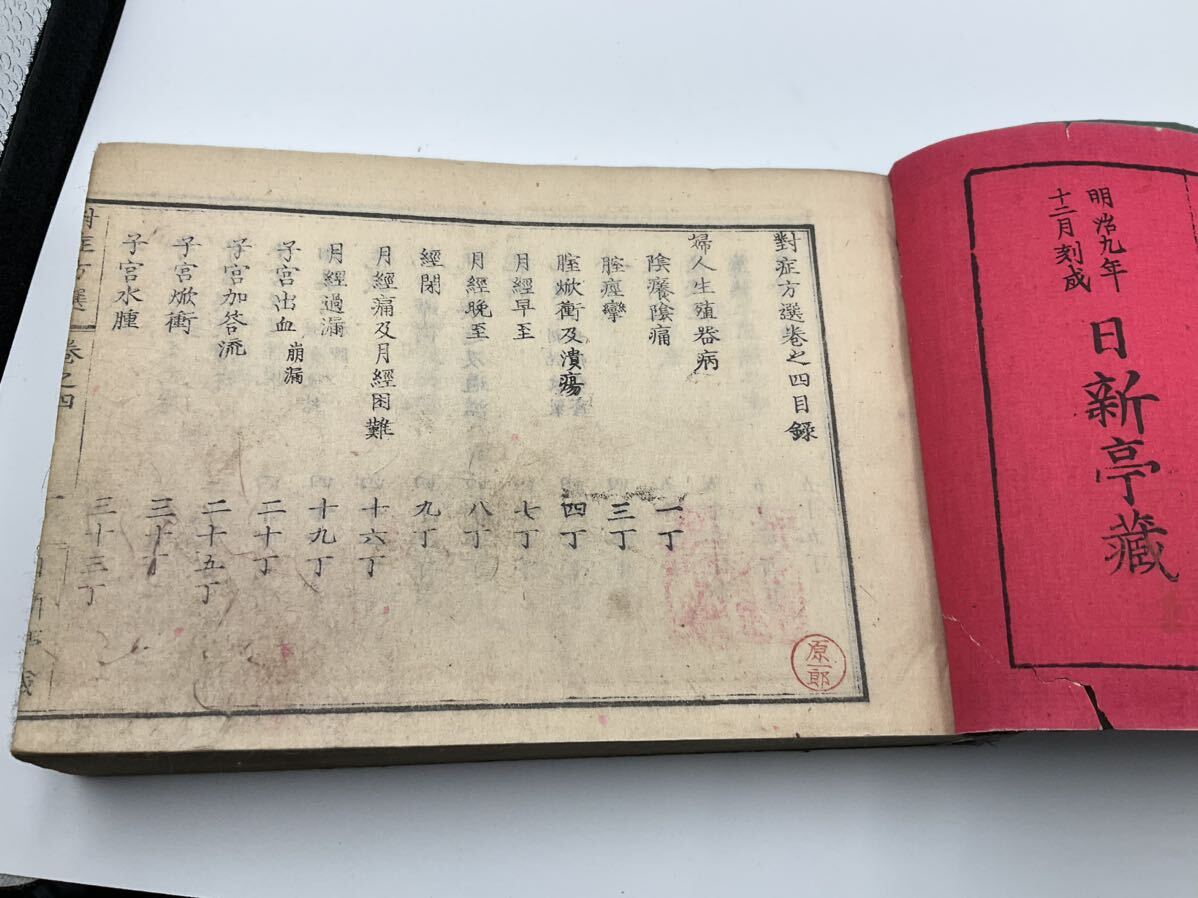 明治九年
十二月刻成
日新亭藏
對症方選卷之四目録
婦人生殖器病
陰癢陰痛 一丁
腟痙攣 三丁
腟焮衝及潰瘍 四丁
月經早至 七丁
月經晩至 八丁
經閉 九丁
月經痛及月經困難 十六丁
月經過漏 十九丁
子宮出血 崩漏 二十丁
子宮加答流 二十五丁
子宮焮衝 三十丁
子宮水腫 三十三丁
對症方選 卷之四
原一郎